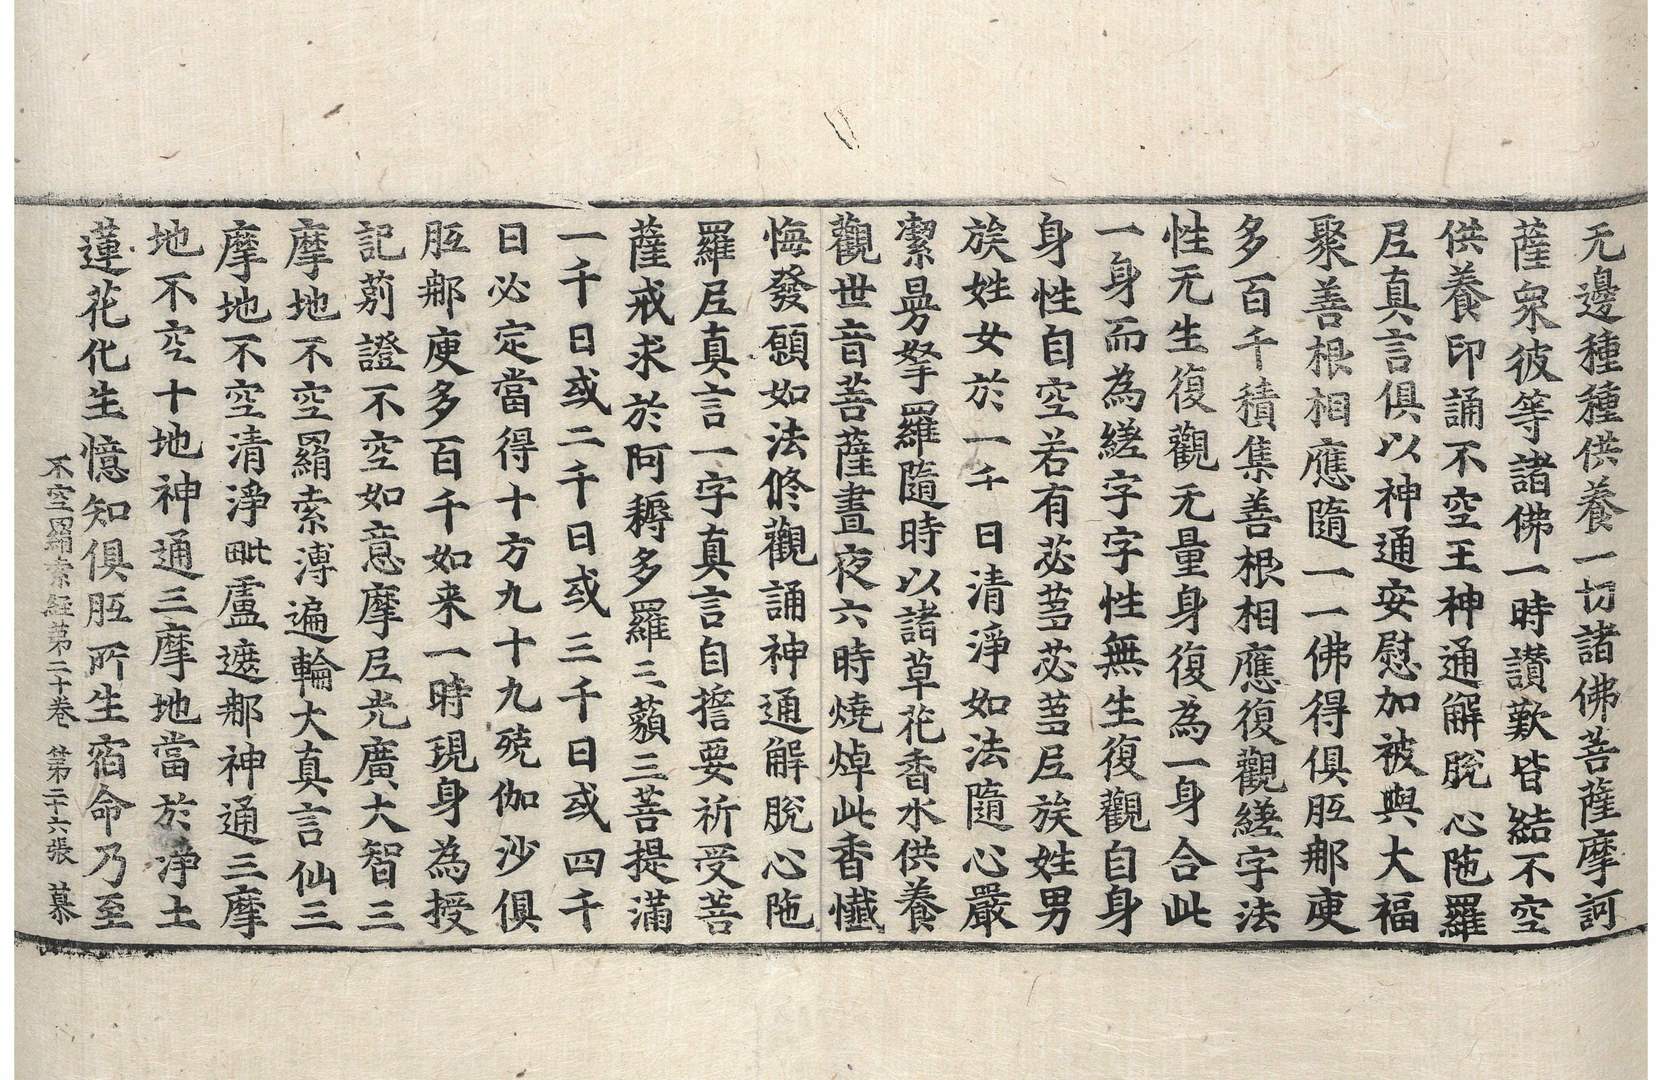 无邊種種供養一切諸佛菩薩摩訶
薩衆彼等諸佛一時讃歎皆結不空
供養印誦不空王神通解脫心陁羅
𡰱真言俱以神通安慰加被與大福
聚善根相應隨一一佛得俱胝那庾
多百千積集善根相應復觀緂字法
性无生復觀无量身復為一身合此
一身而為緂字字性無生復觀自身
身性自空若有苾蒭苾蒭𡰱族姓男
族姓女於一千日清淨如法隨心嚴
潔曼拏羅隨時以諸草花香水供養
觀世音菩薩晝夜六時燒焯此香懺
悔發願如法修觀誦神通解脫心陁
羅𡰱真言一字真言自擔要祈受菩
薩戒求於阿耨多羅三藐三菩提滿
一千日或二千日或三千日或四千
日必定當得十方九十九殑伽沙俱
胝那庾多百千如来一時現身為授
記莂證不空如意摩𡰱光廣大智三
摩地不空羂索溥遍輪大真言仙三
摩地不空清淨毗盧遮那神通三摩
地不空十地神通三摩地當於淨土
蓮花化生憶知俱胝所生宿命乃至
不空羂索經第二十卷 第二十六張 慕